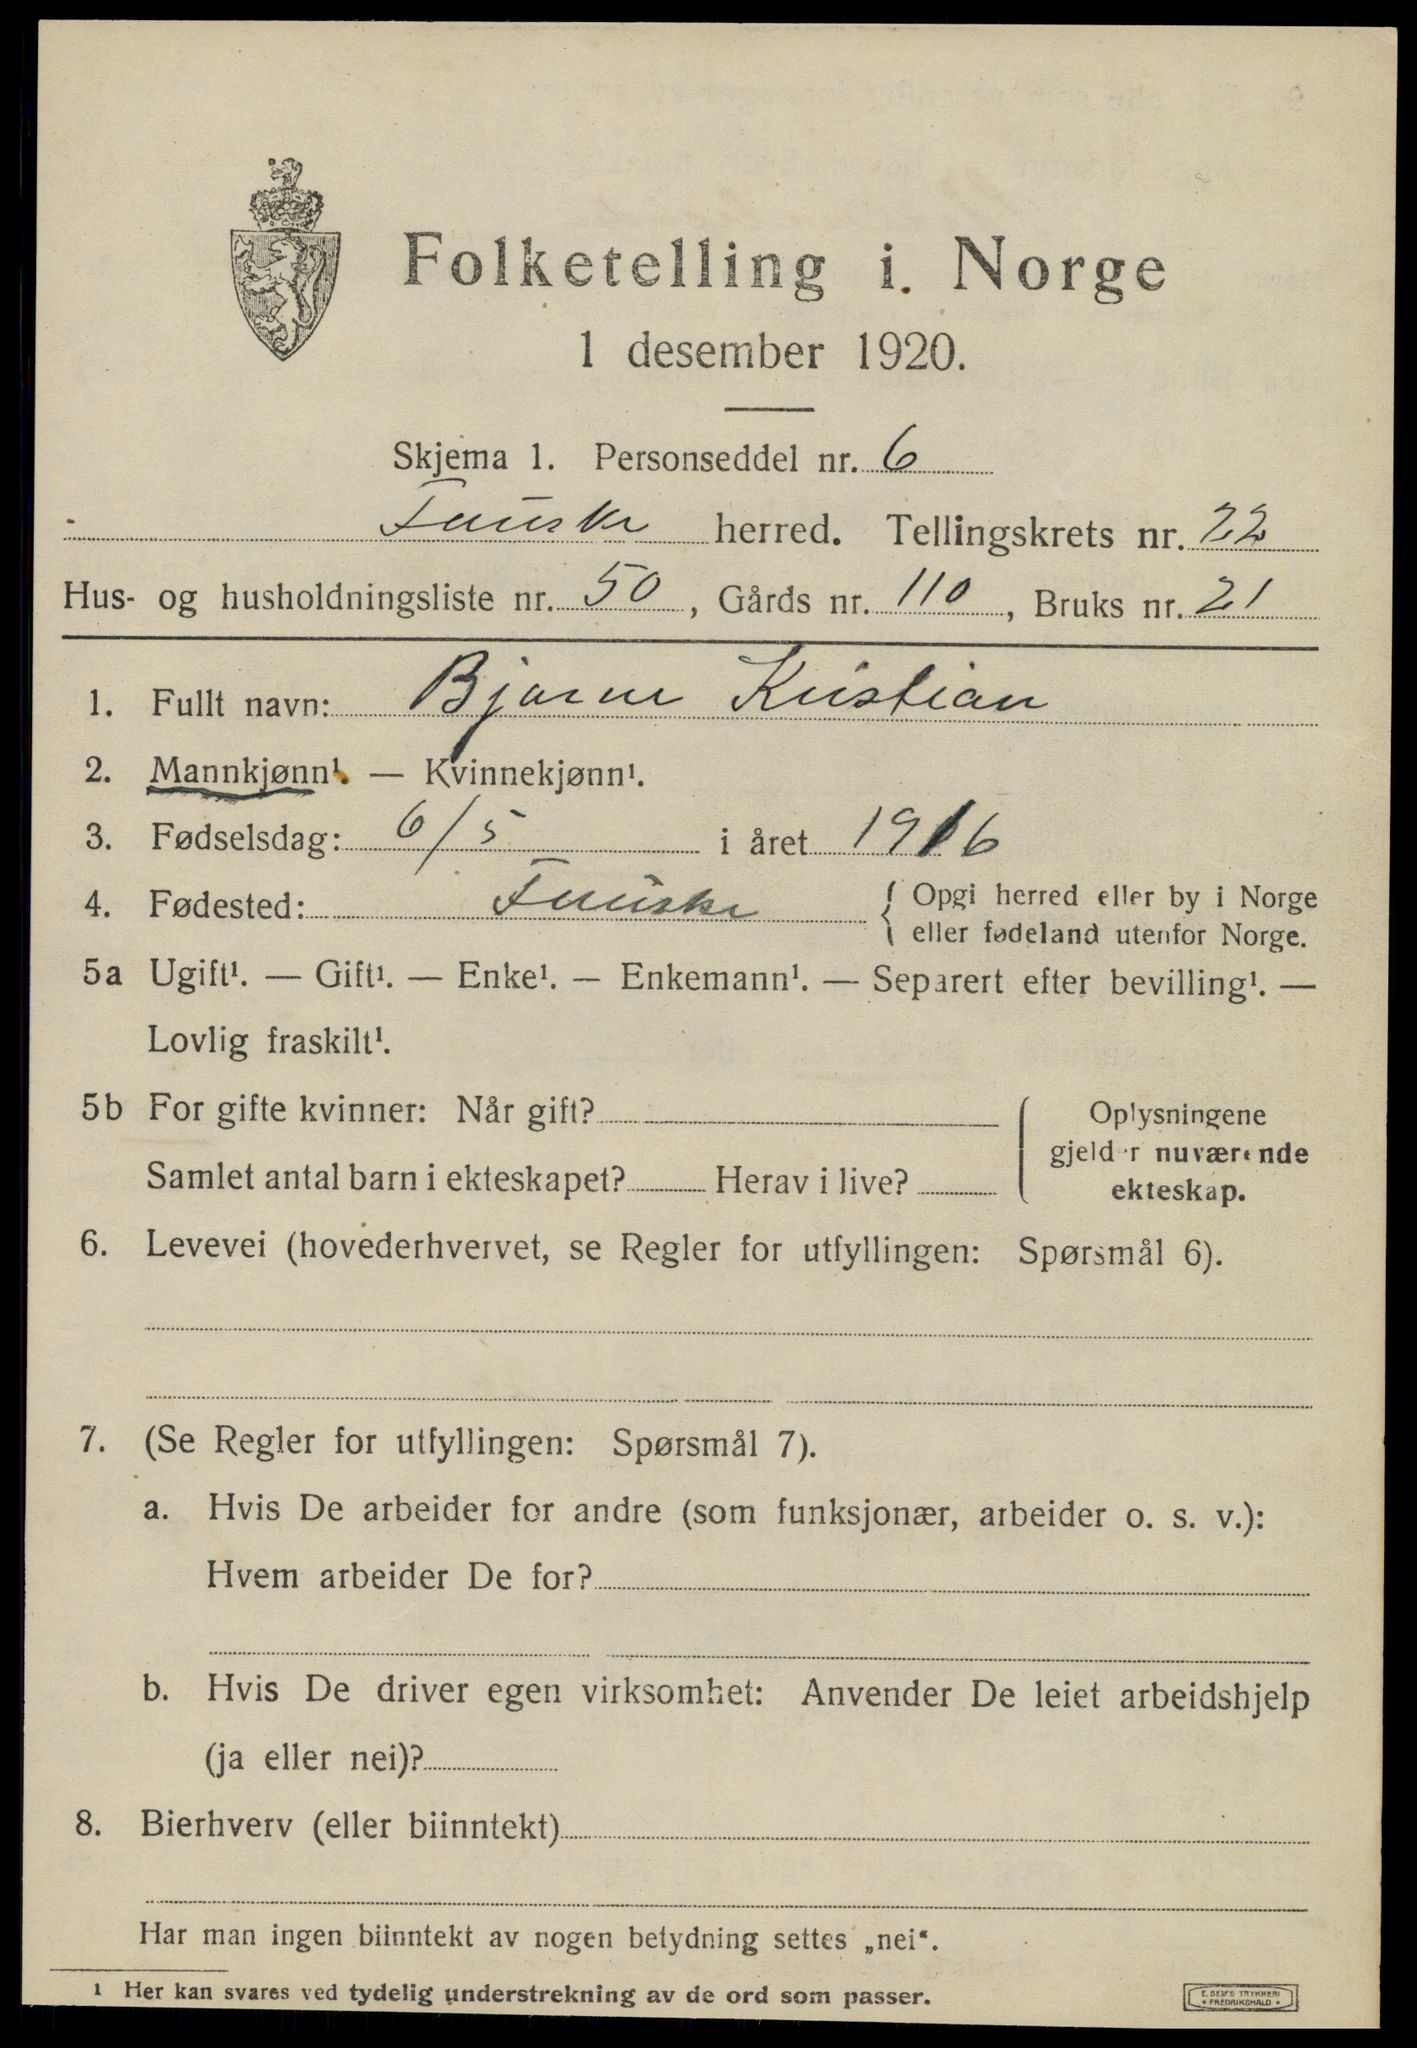 Folketelling i Norge
1 desember 1920.
Skjema 1. Personseddel nr. 6
Fauske herred. Tellingskrets nr. 22
Hus- og husholdningsliste nr. 50, Gårds nr. 110, Bruks nr. 21
1. Fullt navn: Bjarne Kristian
2. Mannkjønn¹. — Kvinnekjønn¹.
3. Fødselsdag: 6/5 i året 1916
4. Fødested: Fauske { Opgi herred eller by i Norge
eller fødeland utenfor Norge.
5a Ugift¹. — Gift¹. — Enke¹. — Enkemann¹. — Separert efter bevilling¹. —
Lovlig fraskilt¹.
5b For gifte kvinner: Når gift?
Samlet antal barn i ekteskapet? Herav i live?
Oplysningene
gjelder nuværende
ekteskap.
6. Levevei (hovederhvervet, se Regler for utfyllingen: Spørsmål 6).
7. (Se Regler for utfyllingen: Spørsmål 7).
a. Hvis De arbeider for andre (som funksjonær, arbeider o. s. v.):
Hvem arbeider De for?
b. Hvis De driver egen virksomhet: Anvender De leiet arbeidshjelp
(ja eller nei)?
8. Bierhverv (eller biinntekt)
Har man ingen biinntekt av nogen betydning settes „nei“.
1 Her kan svares ved tydelig understrekning av de ord som passer.
E. SEM'S TRYKKERI
• FREDRIKSHALD •